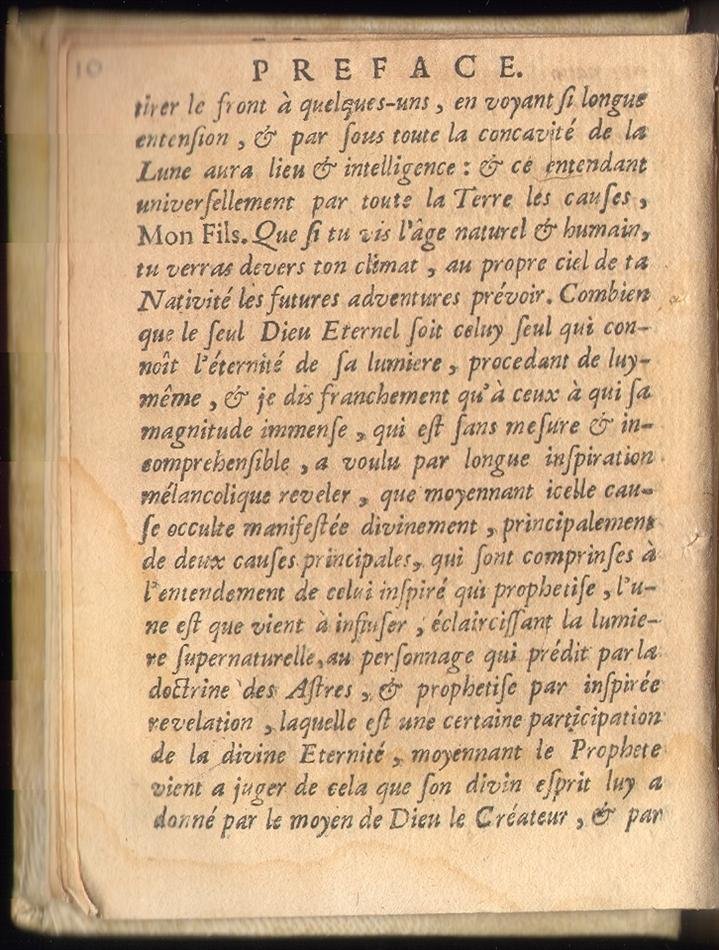 10
PREFACE.
tirer le front à quelques-uns, en voyant ſi longue
entenſion, & par ſous toute la concavité de la
Lune aura lieu & intelligence : & ce entendant
univerſellement par toute la Terre les cauſes,
Mon Fils. Que ſi tu vis l'âge naturel & humain,
tu verras devers ton climat, au propre ciel de ta
Nativité les futures adventures prévoir. Combien
que le ſeul Dieu Eternel ſoit celuy ſeul qui con-
noît l'éternité de ſa lumiere, procedant de luy-
même, & je dis franchement qu'à ceux à qui ſa
magnitude immenſe, qui eſt ſans meſure & in-
comprehenſible, a voulu par longue inſpiration
mélancolique reveler, que moyennant icelle cau-
ſe occulte manifeſtée divinement, principalement
de deux cauſes principales, qui ſont comprinſes à
l'entendement de celui inſpiré qui prophetiſe, l'u-
ne eſt que vient à infuſer, éclairciſſant la lumie-
re ſupernaturelle, au perſonnage qui prédit par la
doctrine des Aſtres, & prophetiſe par inſpirée
revelation, laquelle eſt une certaine participation
de la divine Eternité, moyennant le Prophete
vient a juger de cela que ſon divin eſprit luy a
donné par le moyen de Dieu le Créateur, & par